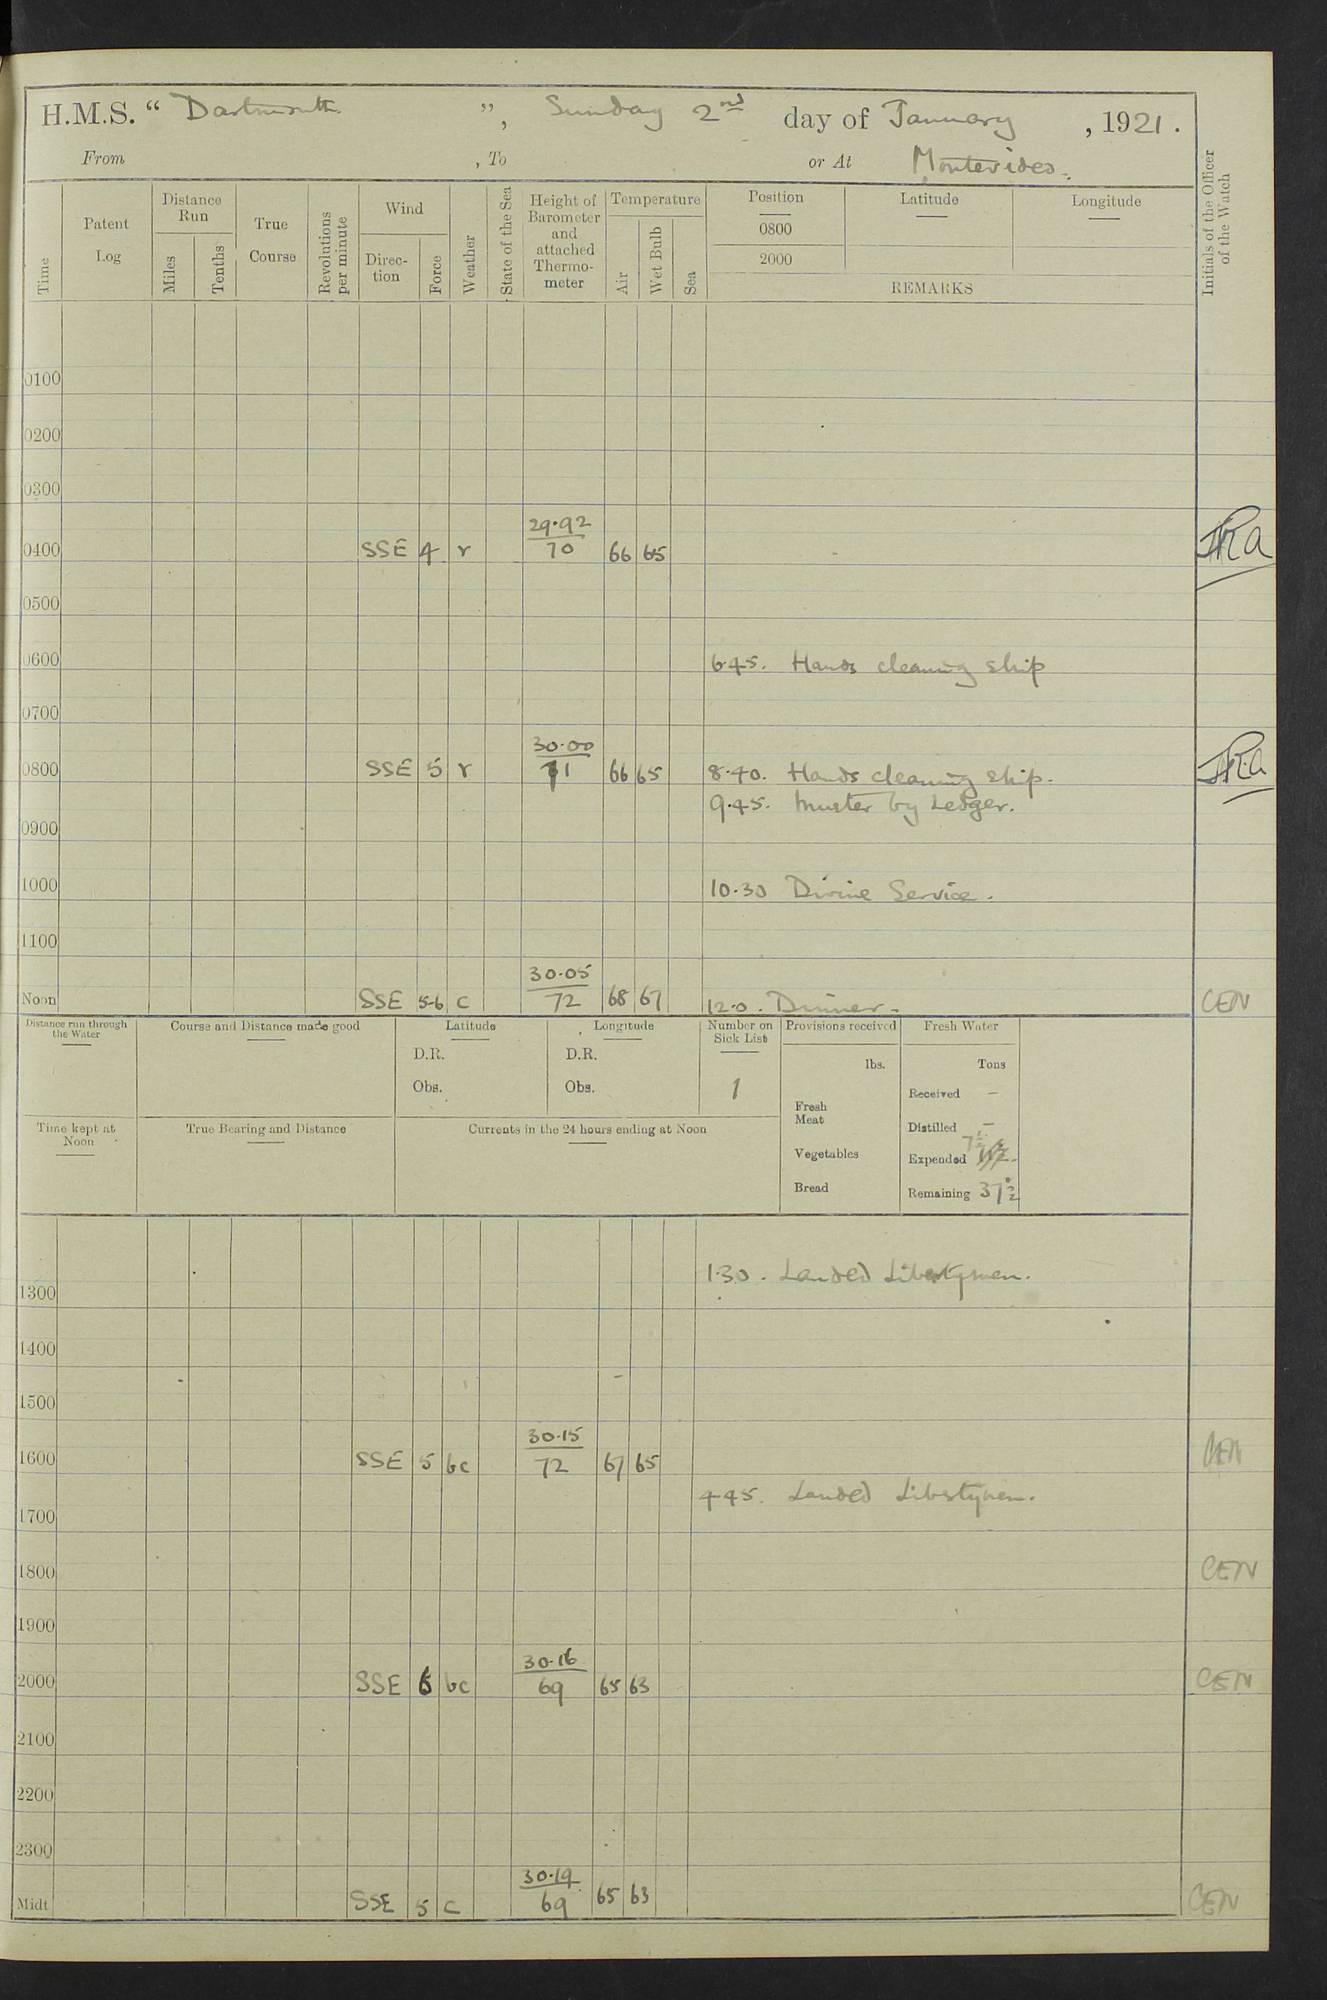 H.M.S. “ Dartmouth ”, Sunday 2nd day of January , 1921.
From , To or At Montevideo.
Time
Patent Log
Distance Run
Miles
Tenths
True Course
Revolutions per minute
Wind
Direction
Force
Weather
State of the Sea
Height of Barometer and attached Thermometer
Temperature
Air
Wet Bulb
Sea
Position
0800
2000
Latitude
Longitude
REMARKS
Initials of the Officer of the Watch
0100
0200
0300
0400 SSE 4 r 29.92 70 66 65
0500
0600 6.45. Hands cleaning ship
0700
0800 SSE 5 r 30.00 71 66 65 8.40. Hands cleaning ship.
9.45. Muster by Ledger.
0900
1000 10.30 Divine Service.
1100
Noon SSE 5-6 c 30.05 72 68 67 12.0. Dinner. CEN
Distance run through the Water
Course and Distance made good
Latitude
D.R.
Obs.
Longitude
D.R.
Obs.
Number on Sick List
1
Provisions received
lbs.
Fresh Meat
Vegetables
Bread
Fresh Water
Tons
Received –
Distilled –
Expended 7½
Remaining 37½
Time kept at Noon
True Bearing and Distance
Currents in the 24 hours ending at Noon
1300 1.30. Landed Libertymen.
1400
1500
1600 SSE 5 bc 30.15 72 67 65 CEN
4.45. Landed Libertymen.
1700
1800 CEN
1900
2000 SSE 5 bc 30.16 69 65 63 CEN
2100
2200
2300
Midt SSE 5 c 30.19 69 65 63 CEN